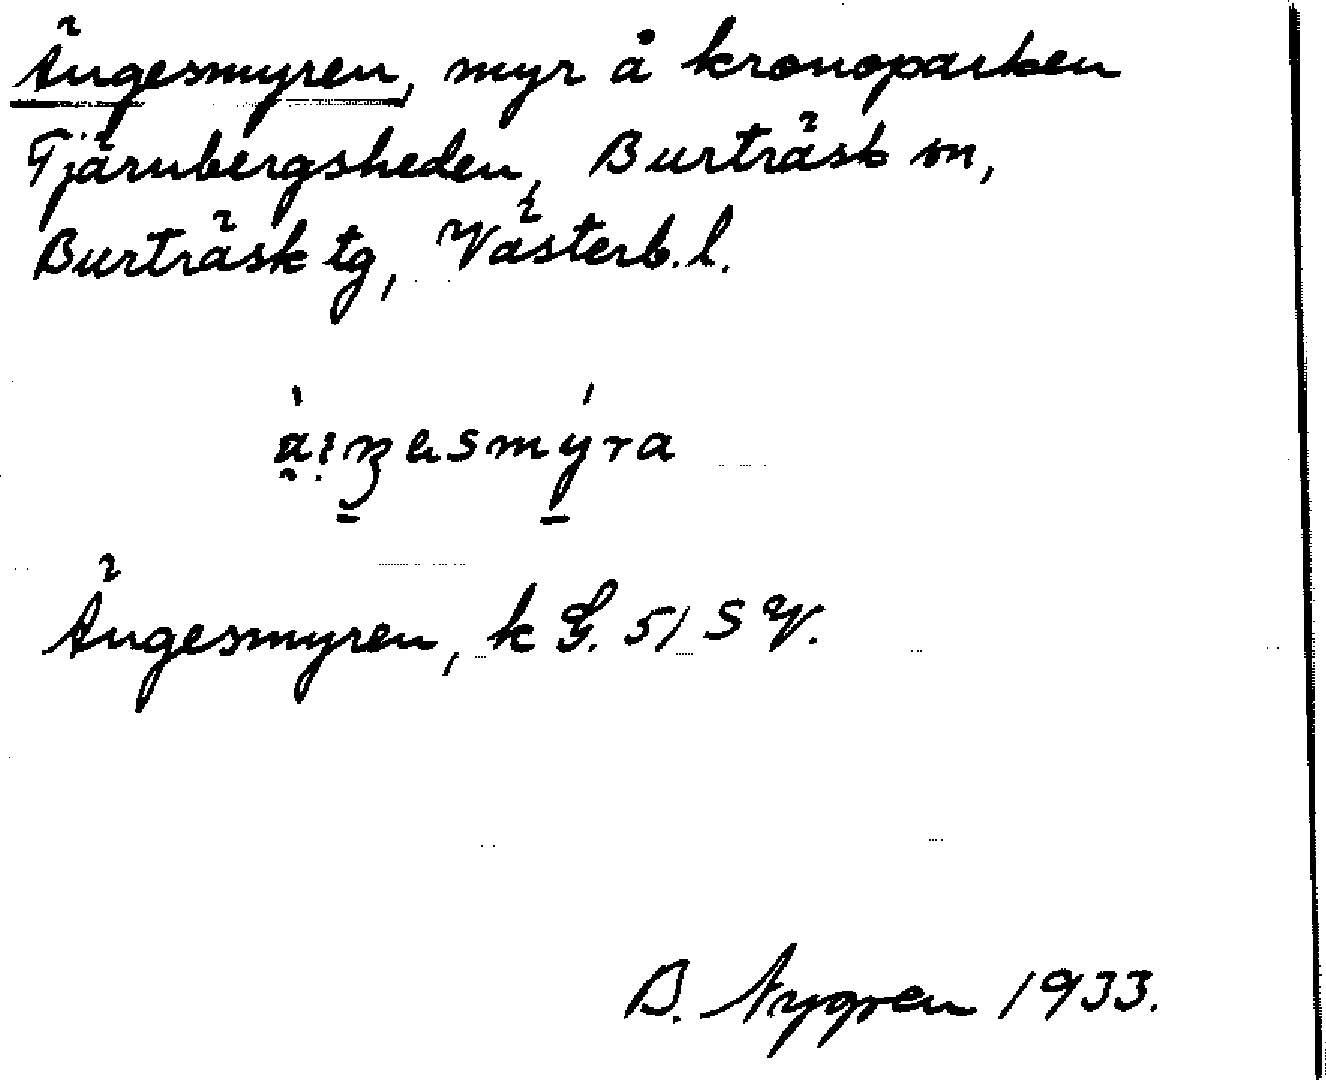 Ängesmyren, myr å kronoparken
Tjärnbergsheden, Burträsk sn,
Burträsk tg, Västerb. l.
Ängesmyren, k G. 51 S V.
B. Nygren 1933.